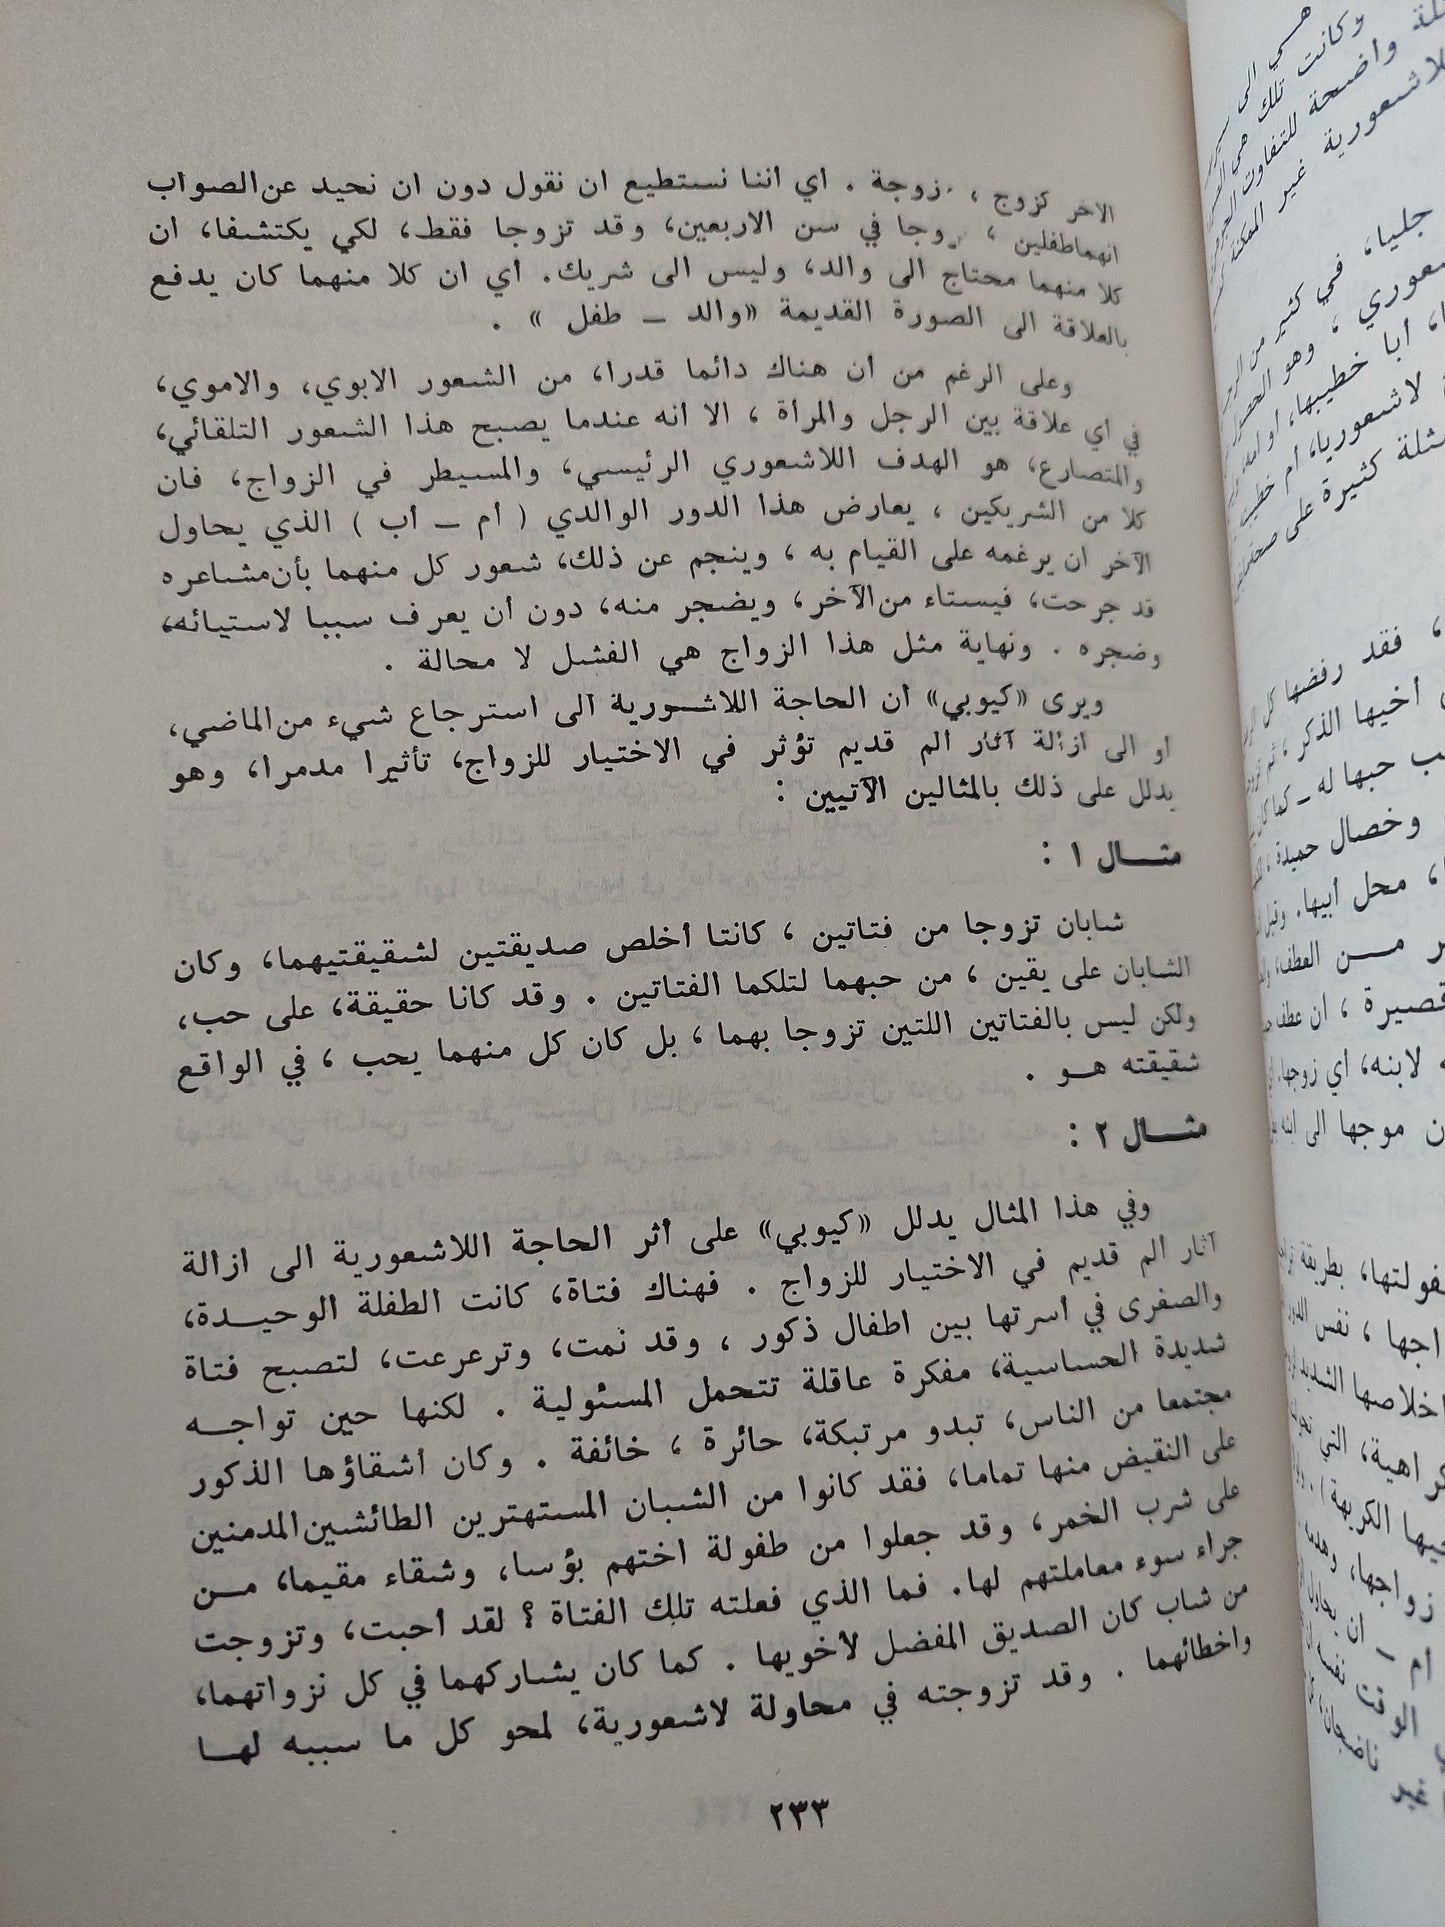 الاخر كزوج ، زوجة . اي اننا نستطيع ان نقول دون ان نحيد عن الصواب
انهما طفلين ، زوجا في سن الاربعين، وقد تزوجا فقط، لكي يكتشفا، ان
كلا منهما محتاج الى والد، وليس الى شريك. أي ان كلا منهما كان يدفع
بالعلاقة الى الصورة القديمة «والد ــ طفل » .
وعلى الرغم من أن هناك دائما قدرا، من الشعور الابوي، والاموي،
في أي علاقة بين الرجل والمرأة ، الا انه عندما يصبح هذا الشعور التلقائي،
والمتصارع، هو الهدف اللاشعوري الرئيسي، والمسيطر في الزواج، فان
كلا من الشريكين ، يعارض هذا الدور الوالدي ( أم ــ أب ) الذي يحاول
الآخر ان يرغمه على القيام به ، وينجم عن ذلك، شعور كل منهما بأن مشاعره
قد جرحت، فيستاء من الآخر، ويضجر منه، دون أن يعرف سببا لاستيائه،
وضجره . ونهاية مثل هذا الزواج هي الفشل لا محالة .
ويرى «كيوبي» أن الحاجة اللاشــورية الى استرجاع شيء من الماضي،
أو الى ازالة آثار الم قديم تؤثر في الاختيار للزواج، تأثيرا مدمرا، وهو
يدلل على ذلك بالمثالين الآتيين :
مثــال ١ :
شابان تزوجا من فتاتين ، كانتا أخلص صديقتين لشقيقتيهما، وكان
الشابان على يقين ، من حبهما لتلكما الفتاتين . وقد كانا حقيقة، على حب،
ولكن ليس بالفتاتين اللتين تزوجا بهما ، بل كان كل منهما يحب ، في الواقع
شقيقته هــو .
مثــال ٢ :
وفي هذا المثال يدلل «كيوبي» على أثر الحاجة اللاشعورية الى ازالة
آثار الم قديم في الاختيار للزواج . فهناك فتاة، كانت الطفلة الوحيــدة،
والصغرى في أسرتها بين اطفال ذكور ، وقد نمت، وترعرعت، لتصبح فتاة
شديدة الحساسية، مفكرة عاقلة تتحمل المسئولية . لكنها حين تواجــه
مجتمعا من الناس، تبدو مرتبكة، حائرة ، خائفة . وكان أشقاؤها الذكور
على النقيض منها تماما، فقد كانوا من الشبان المستهترين الطائشين المدمنين
على شرب الخمر، وقد جعلوا من طفولة اختهم بؤسا، وشقاء مقيما، مــن
جراء سوء معاملتهم لها. فما الذي فعلته تلك الفتاة ؟ لقد أحبت، وتزوجت
من شاب كان الصديق المفضل لأخويها . كما كان يشاركهما في كل نزواتهما،
واخطائهما . وقد تزوجته في محاولة لاشعورية، لمحو كل ما سببه لهــا
٢٣٣
هــي الى
وكانت تلك هي
واضحة للتفاوت
للاشعورية غير الممكنة
جليا، في كثير من
، وهو
أبا خطيبها، او
لاشعوريا، أم
كثيرة على
، فقد رفضها كل
أخيها الذكر ، ثم
حبها له ــ كما كان
وخصال حميدة ،
، محل أبيها. وقبل
مــن العطف،
قصيرة ، ان عطف
لابنه، اي زوجها،
موجها الى ابنه
، بطريقة
، نفس الدور
الشديد
، التي
الكريهة ) .
زواجها،
أم ــ ان يحاول
الوقت نفسه